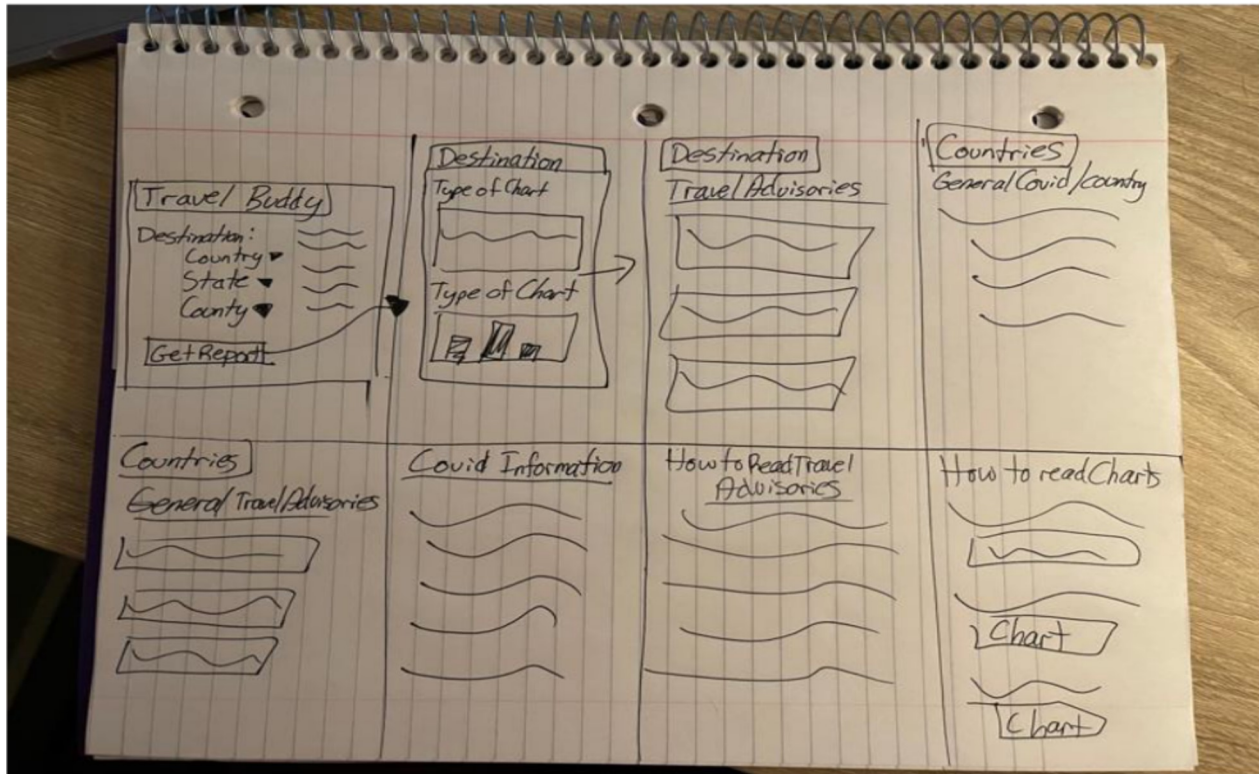 Travel Buddy
Destination:
Country
State
County
Get Report
Destination
Type of Chart
Type of Chart
Destination
Travel Advisories
Countries
General Covid/country
Countries
General Travel Advisories
Covid Information
How to Read Travel
Advisories
How to read Charts
Chart
Chart